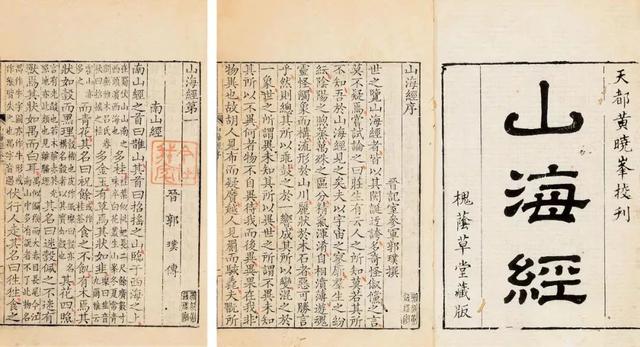 天都黃曉峯校刊
山海經
槐蔭草堂藏版
山海經序
晉記室參軍郭璞撰
世之覽山海經者皆以其閎誕迂誇多奇怪俶儻之言
莫不疑焉嘗試論之曰莊生有云人之所知莫若其所
不知吾於山海經見之矣夫以宇宙之寥廓羣生之紛
紜陰陽之煦蒸萬殊之區分精氣渾淆自相濆薄遊魂
靈怪觸象而構流形於山川麗狀於木石者惡可勝言
乎然則總其所以乖鼓之於一響成其所以變混之於
一象世之所謂異未知其所以異世之所謂不異未知
其所以不異何者物不自異待我而後異異果在我非
物異也故胡人見布而疑黂越人見罽而駭毳夫翫所
山海經第一
晉郭璞傳
南山經
南山經之首曰䧿山其首曰招搖之山臨于西海之上
多桂
多金玉有草焉其狀如韭
而青花其名曰祝餘食之不飢有木焉其
狀如穀而黑理其花四照
其名曰迷穀佩之不迷有
獸焉其狀如禺而白耳
伏行人走其名曰狌狌食之